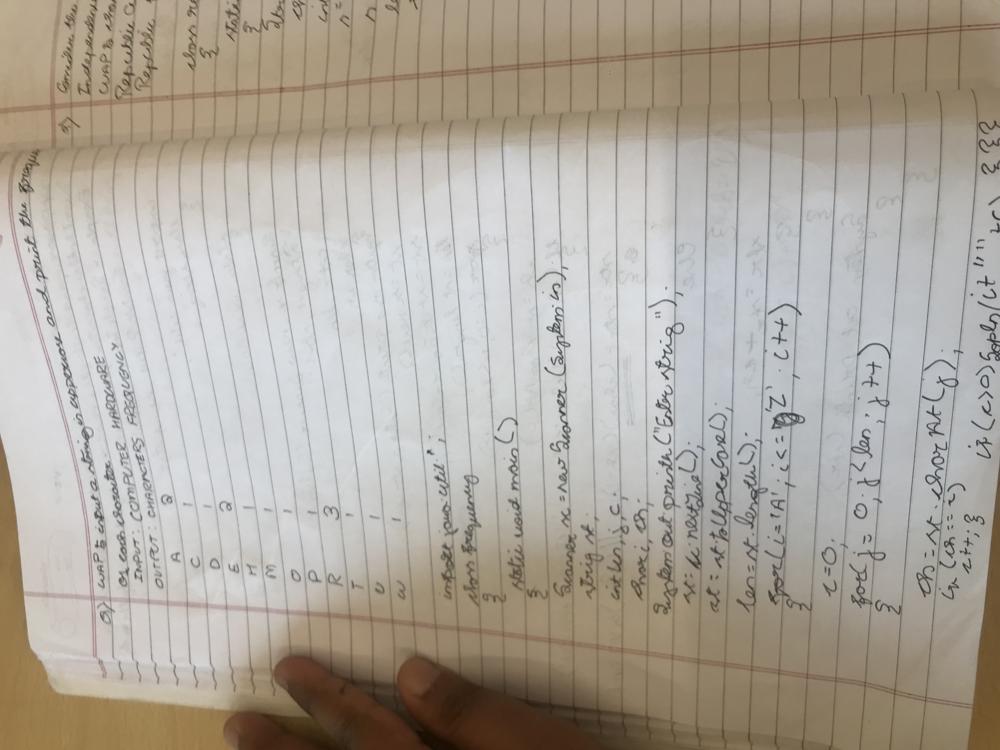 Q) WAP to input a string in uppercase and print the freque
of each character.
INPUT: COMPUTER HARDWARE
OUTPUT: CHARACTERS FREQUENCY
A 2
C 1
D 1
E 2
H 1
M 1
O 1
P 1
R 3
T 1
U 1
W 1
import java.util*;
class frequency
{
static void main()
{
Scanner sc=new Scanner(System.in);
String st;
int len,j,c;
char i, ch;
System.out.println("Enter strig");
st=sc.nextLine();
st=st.toUpperCase();
len=st.length();
for(i='A'; i<='Z'; i++)
{
c=0;
for(j=0; j<len; j++)
{
ch=st.charAt(j);
if(ch==i)
c++;}
if(c>0) Sopln(i+" "+c) } } }
Consider the
Independen
WAP to
Republic
Republic
class
{
static
{